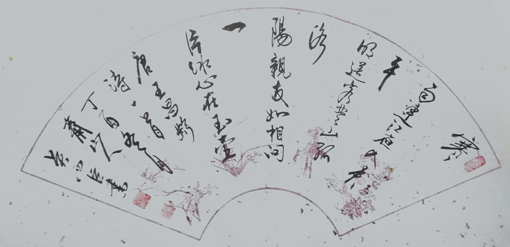 寒
雨連江夜入吳
平
明送客楚山孤
洛
陽親友如相問
一
片冰心在玉壺
唐王昌齡
詩一首
丁酉
書